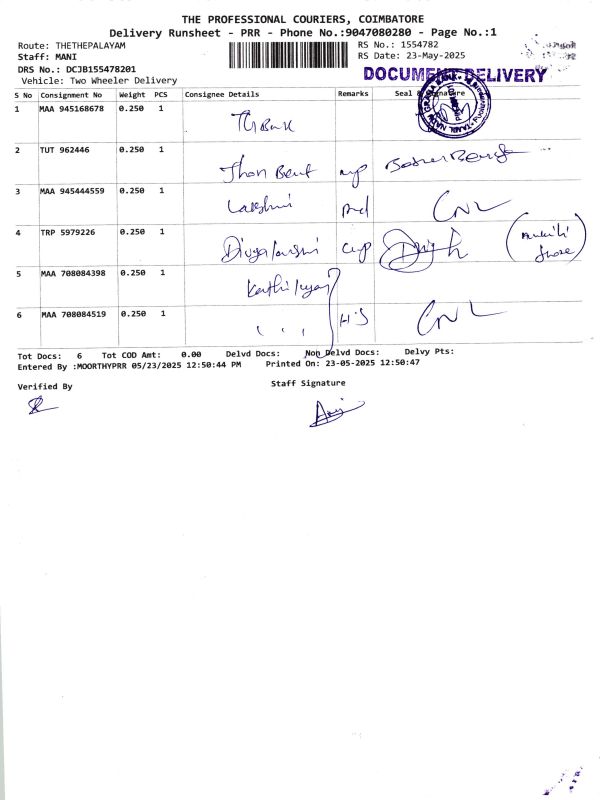 THE PROFESSIONAL COURIERS, COIMBATORE
Delivery Runsheet - PRR - Phone No.:9047080280 - Page No.:1
Route: THETHEPALAYAM RS No.: 1554782
Staff: MANI RS Date: 23-May-2025
DRS No.: DCJB155478201
Vehicle: Two Wheeler Delivery
DOCUMENT DELIVERY
S No Consignment No Weight PCS Consignee Details Remarks Seal & Signature
1 MAA 945168678 0.250 1
2 TUT 962446 0.250 1
3 MAA 945444559 0.250 1 Lakshmi CNL
4 TRP 5979226 0.250 1
5 MAA 708084398 0.250 1
6 MAA 708084519 0.250 1 H/S CNL
Tot Docs: 6 Tot COD Amt: 0.00 Delvd Docs: Non Delvd Docs: Delvy Pts:
Entered By :MOORTHYPRR 05/23/2025 12:50:44 PM Printed On: 23-05-2025 12:50:47
Verified By Staff Signature